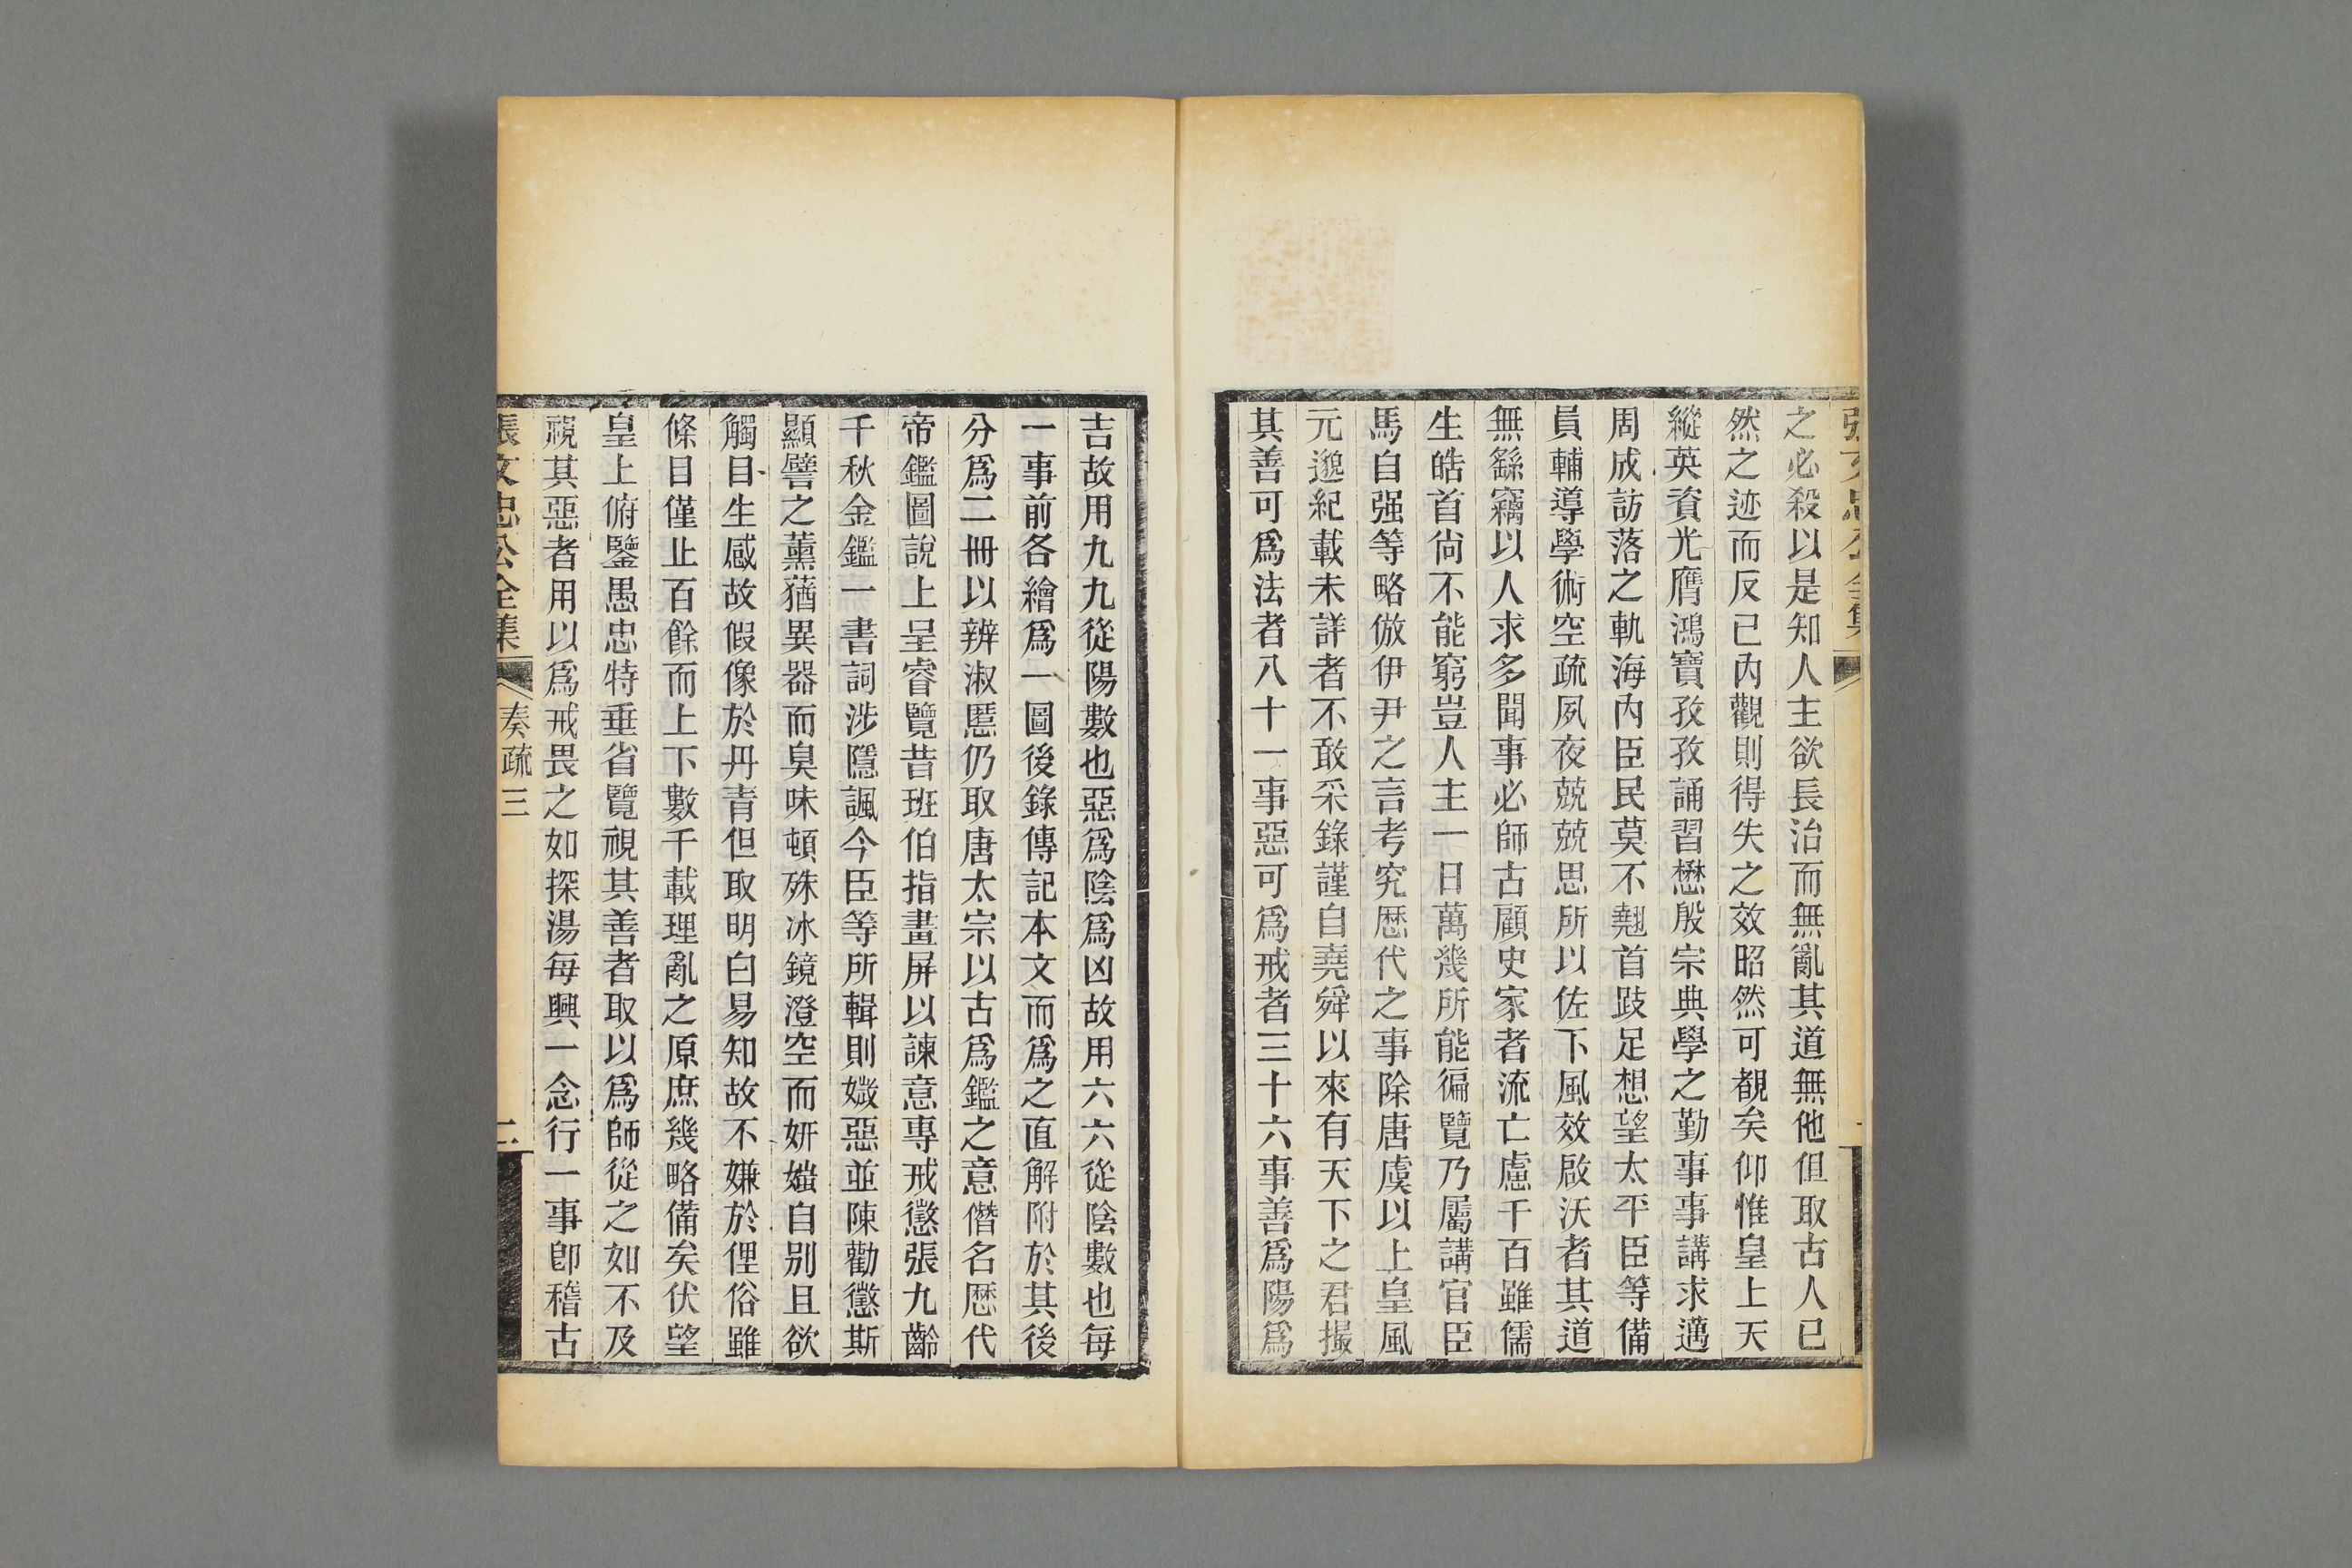 張文忠公全集
之必殺以是知人主欲長治而無亂其道無他但取古人已
然之迹而反已內觀則得失之效昭然可覩矣仰惟皇上天
縱英資光膺鴻寶孜孜誦習懋殷宗典學之勤事事講求邁
周成訪落之軌海內臣民莫不翹首跂足想望太平臣等備
員輔導學術空疏夙夜兢兢思所以佐下風效啟沃者其道
無繇竊以人求多聞事必師古顧史家者流亡慮千百雖儒
生皓首尙不能窮豈人主一日萬幾所能徧覽乃屬講官臣
馬自强等略倣伊尹之言考究歷代之事除唐虞以上皇風
元邈紀載未詳者不敢采錄謹自堯舜以來有天下之君撮
其善可爲法者八十一事惡可爲戒者三十六事善爲陽爲
吉故用九九從陽數也惡爲陰爲凶故用六六從陰數也每
一事前各繪爲一圖後錄傳記本文而爲之直解附於其後
分爲二冊以辨淑慝仍取唐太宗以古爲鑑之意僭名歷代
帝鑑圖說上呈睿覽昔班伯指畫屏以諫意專戒懲張九齡
千秋金鑑一書詞涉隱諷今臣等所輯則媺惡並陳勸懲斯
顯譬之薰蕕異器而臭味頓殊冰鏡澄空而妍媸自別且欲
觸目生感故假像於丹青但取明白易知故不嫌於俚俗雖
條目僅止百餘而上下數千載理亂之原庶幾略備矣伏望
皇上俯鑒愚忠特垂省覽視其善者取以爲師從之如不及
視其惡者用以爲戒畏之如探湯每興一念行一事卽稽古
張文忠公全集 奏疏三 二